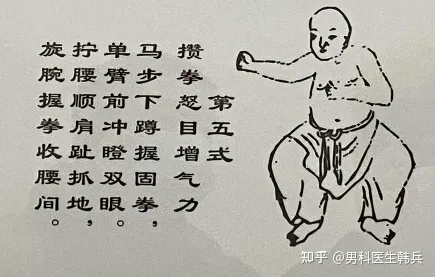 第五式
攒拳怒目增气力
马步下蹲握固拳，
单臂前冲瞪双眼。
拧腰顺肩趾抓地，
旋腕握拳收腰间。
知乎 @男科医生韩兵